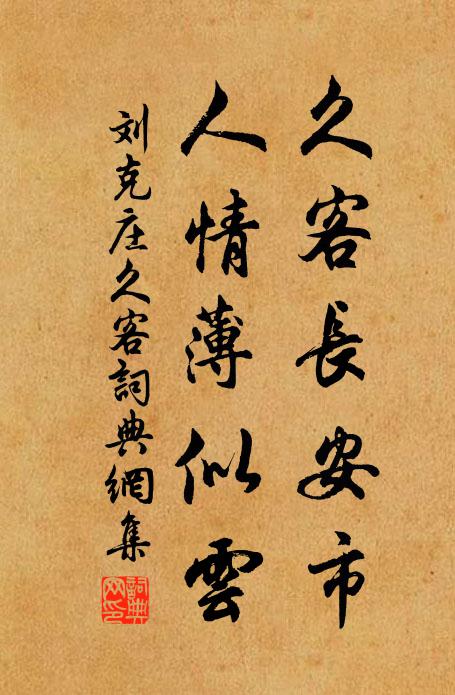 久客長安市
人情薄似雲
刘克庄久客詞典網集
詞典
网印